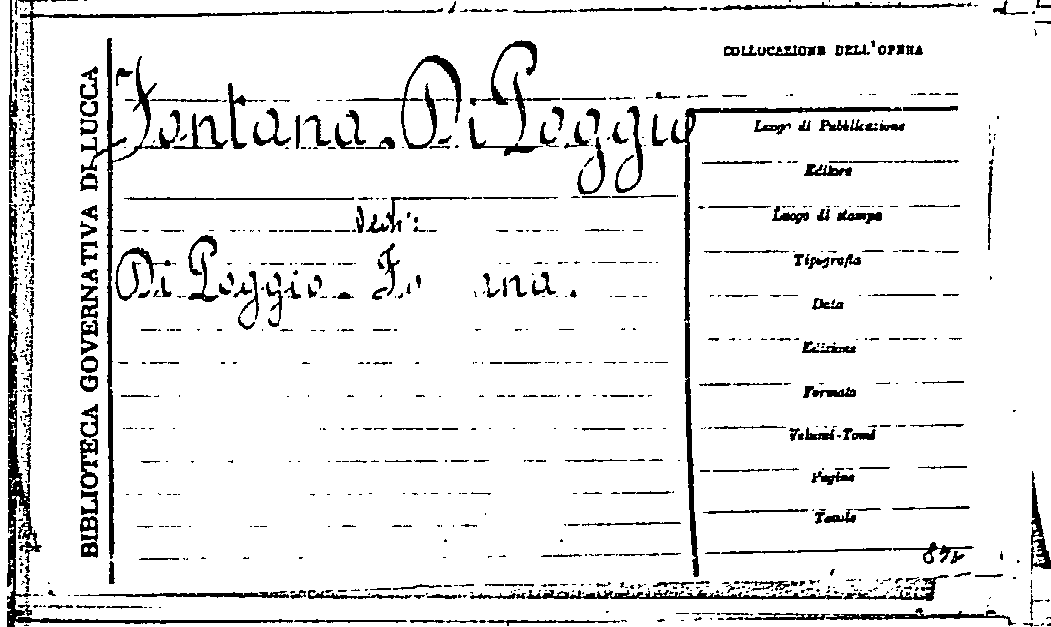 BIBLIOTECA GOVERNATIVA DI LUCCA
Fontana. Di Poggio
Vedi:
Di Poggio. Fo ana.
COLLOCAZIONE DELL'OPERA
Luogo di Pubblicazione
Editore
Luogo di stampa
Tipografia
Data
Edizione
Formato
Volumi-Tomi
Pagine
Tavole